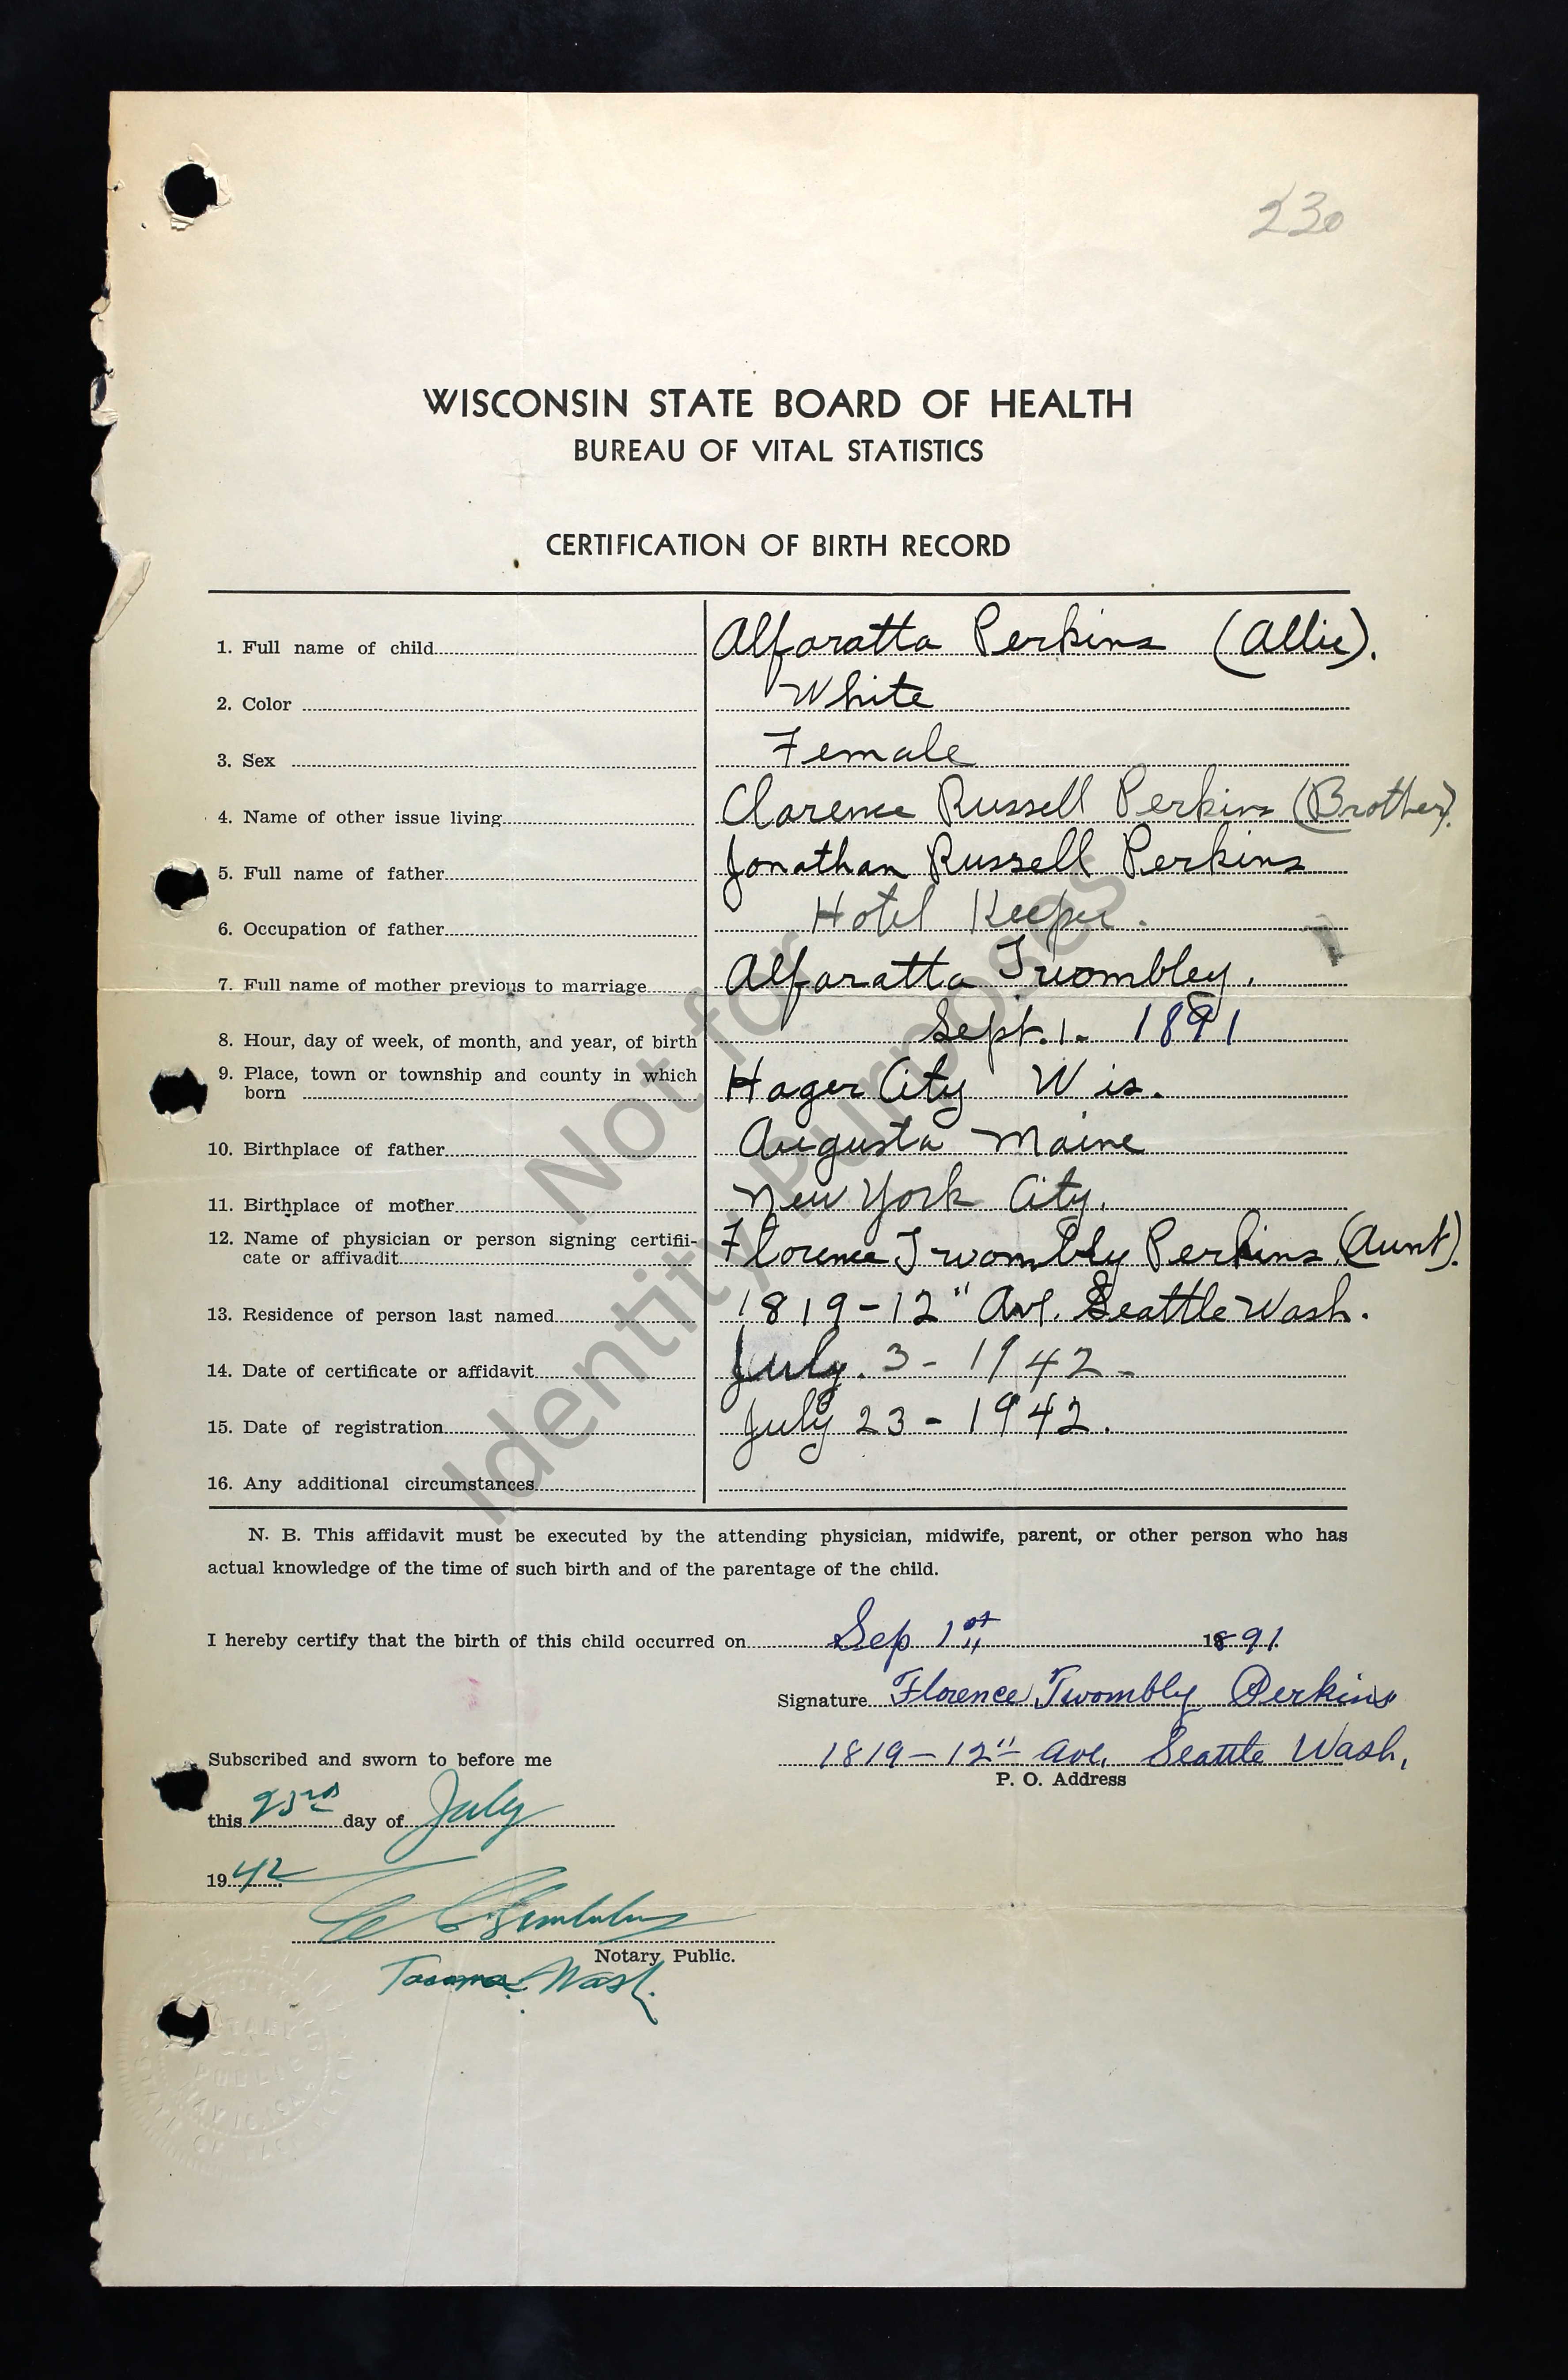 230
WISCONSIN STATE BOARD OF HEALTH
BUREAU OF VITAL STATISTICS
CERTIFICATION OF BIRTH RECORD
1. Full name of child Alfaratta Perkins (Allie).
2. Color White
3. Sex Female
4. Name of other issue living Clarence Russell Perkins (Brother).
5. Full name of father Jonathan Russell Perkins
6. Occupation of father Hotel Keeper.
7. Full name of mother previous to marriage Alfaratta Twombley.
8. Hour, day of week, of month, and year, of birth Sept. 1- 1891
9. Place, town or township and county in which
born Hager City Wis.
10. Birthplace of father Augusta Maine
11. Birthplace of mother New York City.
12. Name of physician or person signing certifii-
cate or affivadit Florence Twombly Perkins (Aunt).
13. Residence of person last named 1819-12" Ave. Seattle Wash.
14. Date of certificate or affidavit July. 3- 1942-
15. Date of registration July 23-1942.
16. Any additional circumstances
Not for
Identity Purposes
N. B. This affidavit must be executed by the attending physician, midwife, parent, or other person who has
actual knowledge of the time of such birth and of the parentage of the child.
I hereby certify that the birth of this child occurred on Sep 1st 1891.
Signature Florence Twombly Perkins
1819-12" Ave. Seattle Wash,
P. O. Address
Subscribed and sworn to before me
this 23rd day of July
1942
Notary Public.
Tacoma Wash.